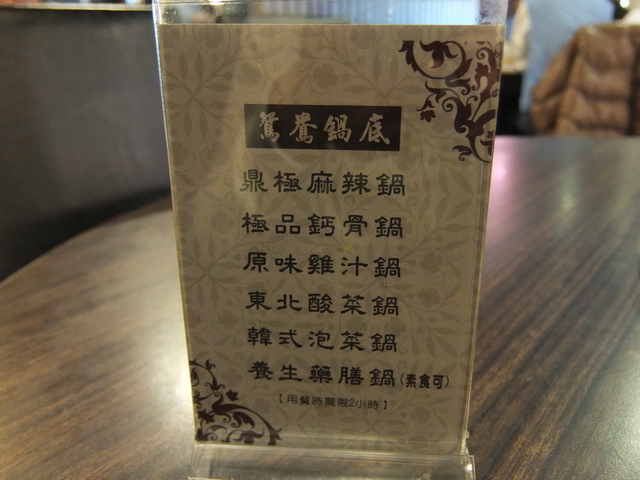 鴛鴦鍋底
鼎極麻辣鍋
極品鈣骨鍋
原味雞汁鍋
東北酸菜鍋
韓式泡菜鍋
養生藥膳鍋(素食可)
【用餐時間限2小時】